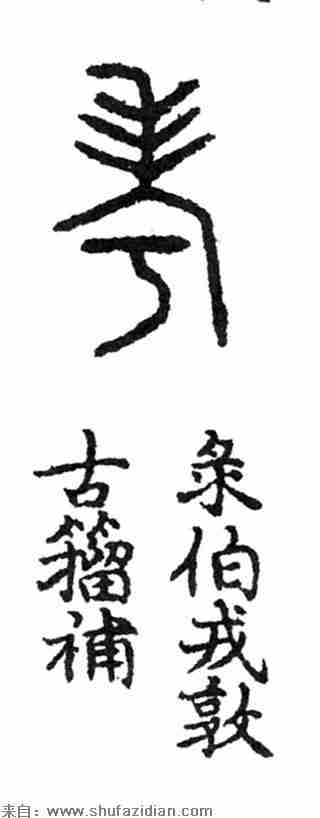 彔伯戎敦
古籀補
来自：www.shufazidian.com